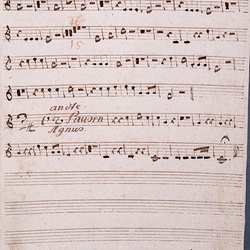 16
15
andte
62 Pausen
Agnus